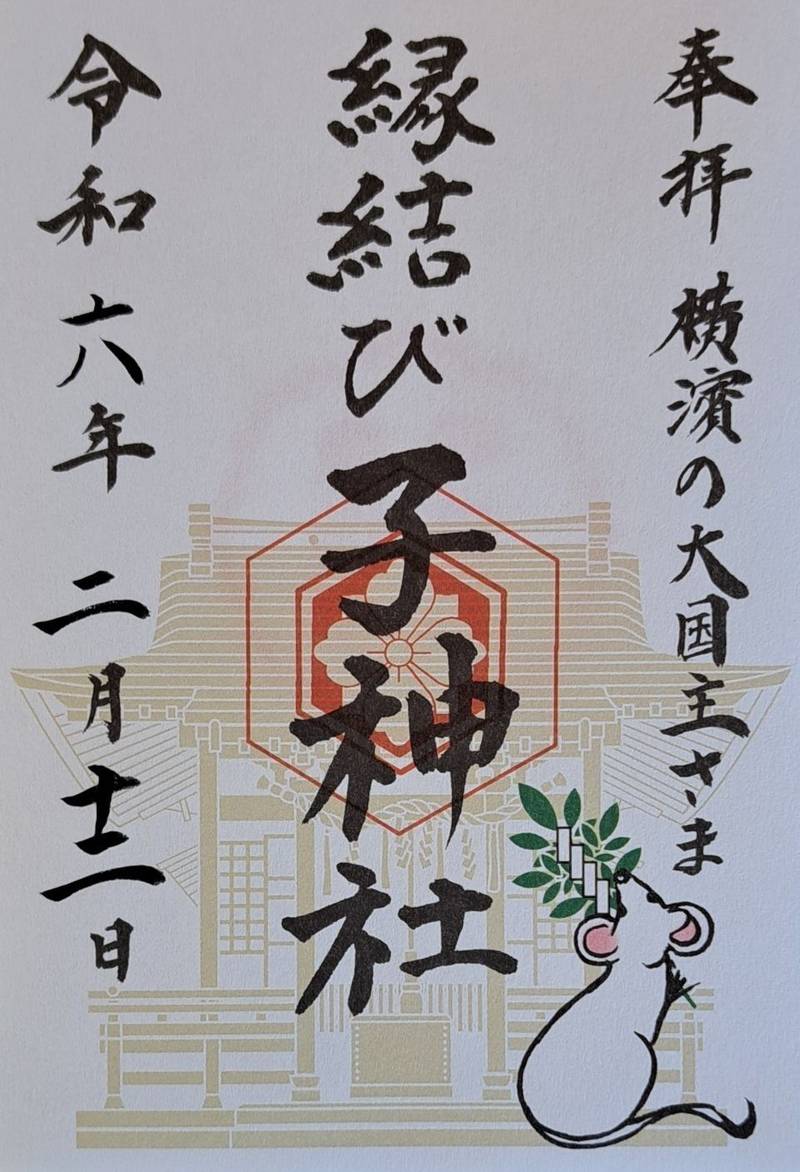 奉拝 横濱の大国主さま
縁結び 子神社
令和六年 二月十二日